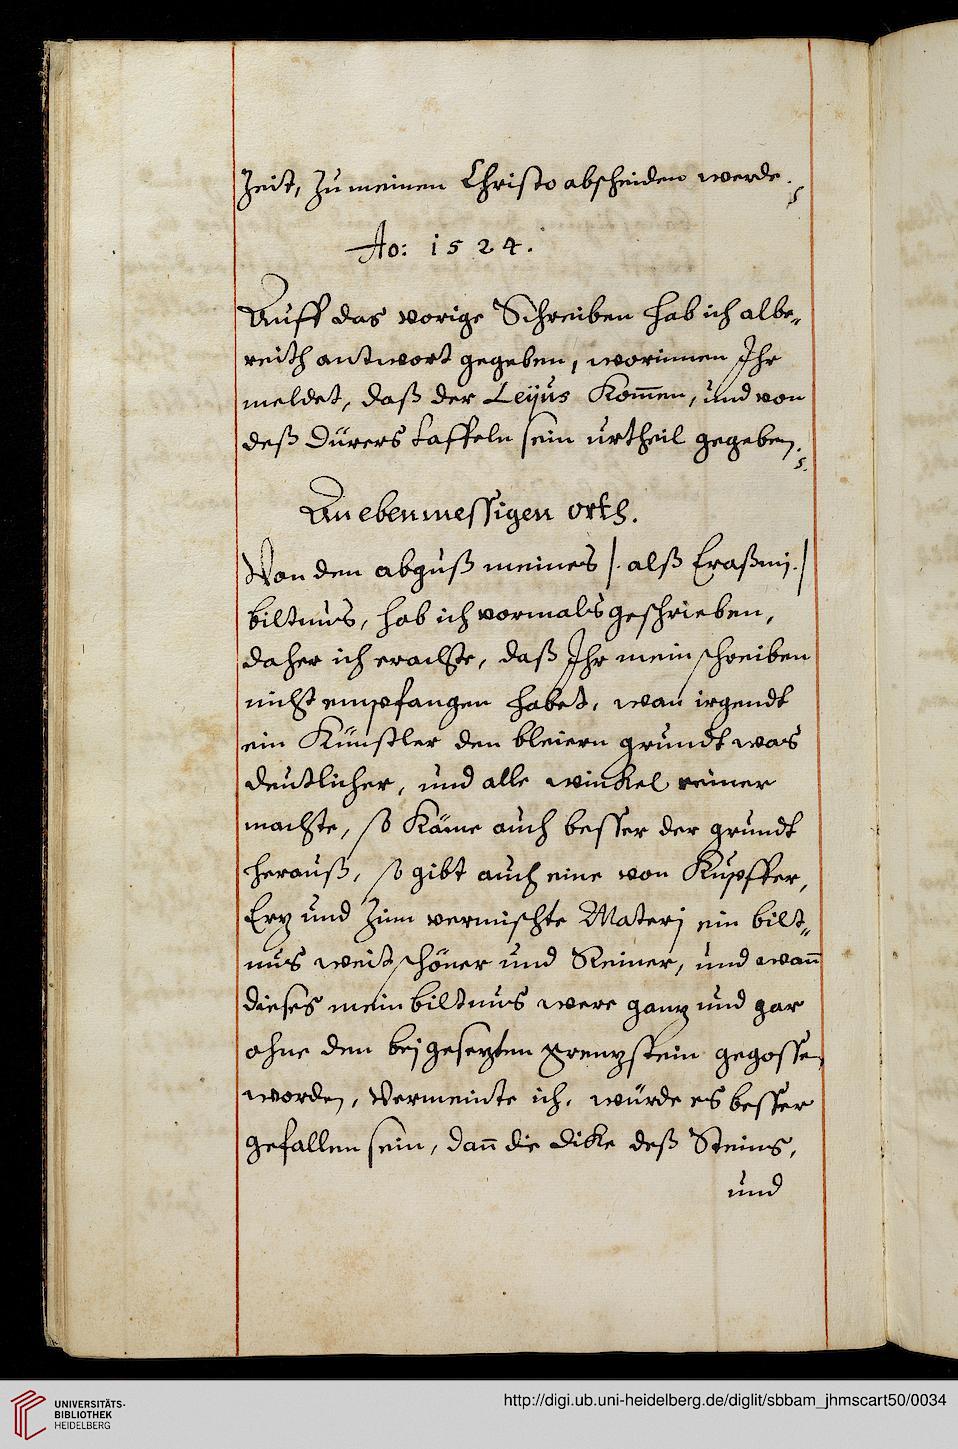 Zeit, zu meinen Christo abscheiden werde.
Ao: 1524.
Auff das vorige Schreiben hab ich albe„
reith antwort gegeben, worinnen Ihr
meldet, daß der Leÿus Kom̄en, und von
deß Dürers Taffeln sein urtheil gegeben.
An ebenmessigen orth.
Von den abguß meines /. alß Eraßmj. /
biltnus, hab ich vormals geschrieben,
daher ich erachte, daß Ihr mein schreiben
nicht empfangen habet, wan irgendt
ein Künstler den bleiern grundt was
deutlicher, und alle winckel reiner
machte, so Käme auch besser der grundt
herauß, so gibt auch eine von Kupffer,
Erz und Zinn vermischte Materj ein bilt„
nus weit schöner und Reiner, und wan̄
dieses mein biltnus were ganz und gar
ohne den bej gesezten grenzstein gegossen
worden, Vermeinte ich, würde es besser
gefallen sein, dan̄ die dicke deß Steins,
und
UNIVERSITÄTS-
BIBLIOTHEK
HEIDELBERG
http://digi.ub.uni-heidelberg.de/diglit/sbbam_jhmscart50/0034